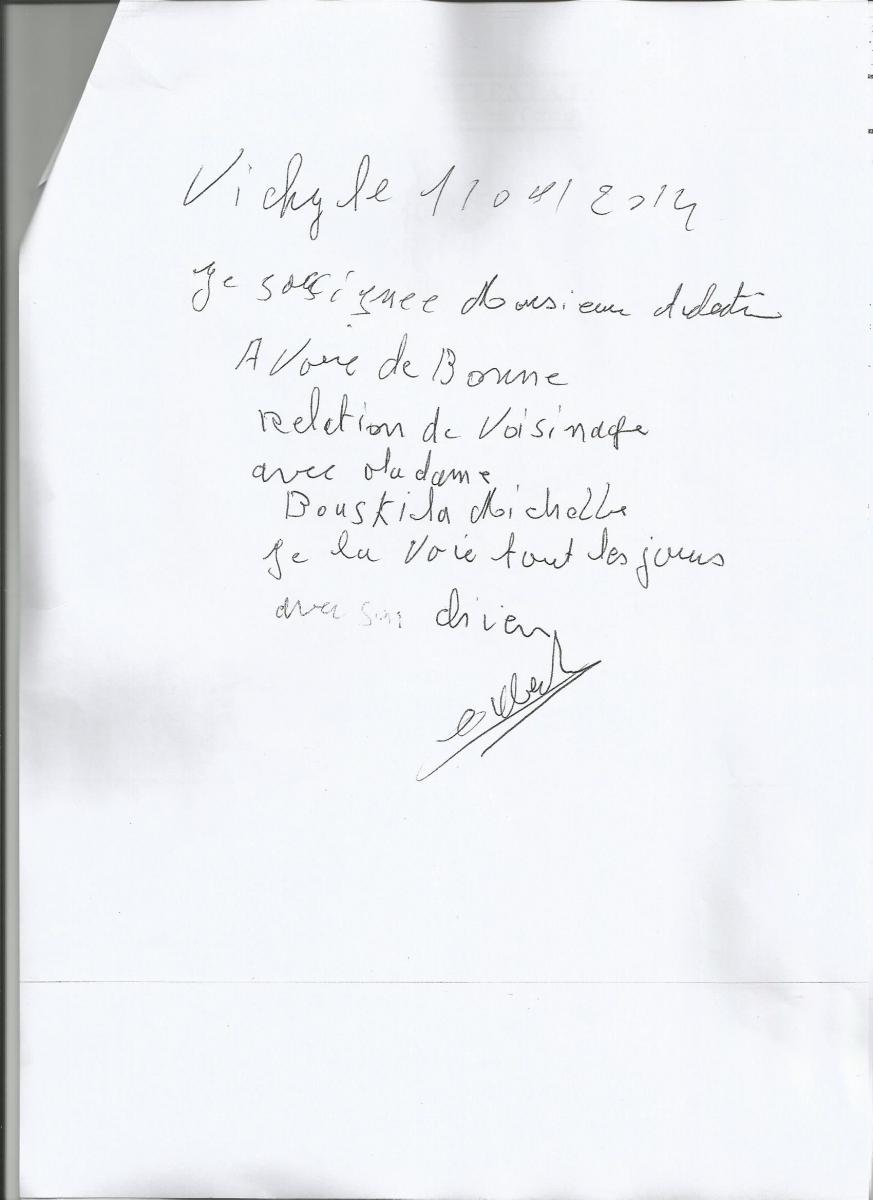 Vichy le 1/04/2014
Je sossignee Monsieur
A Voire de Bonne
relation de Voisinage
avec Madame
Bouskila Michelle
Je la Voie tout les jours
avec son chien